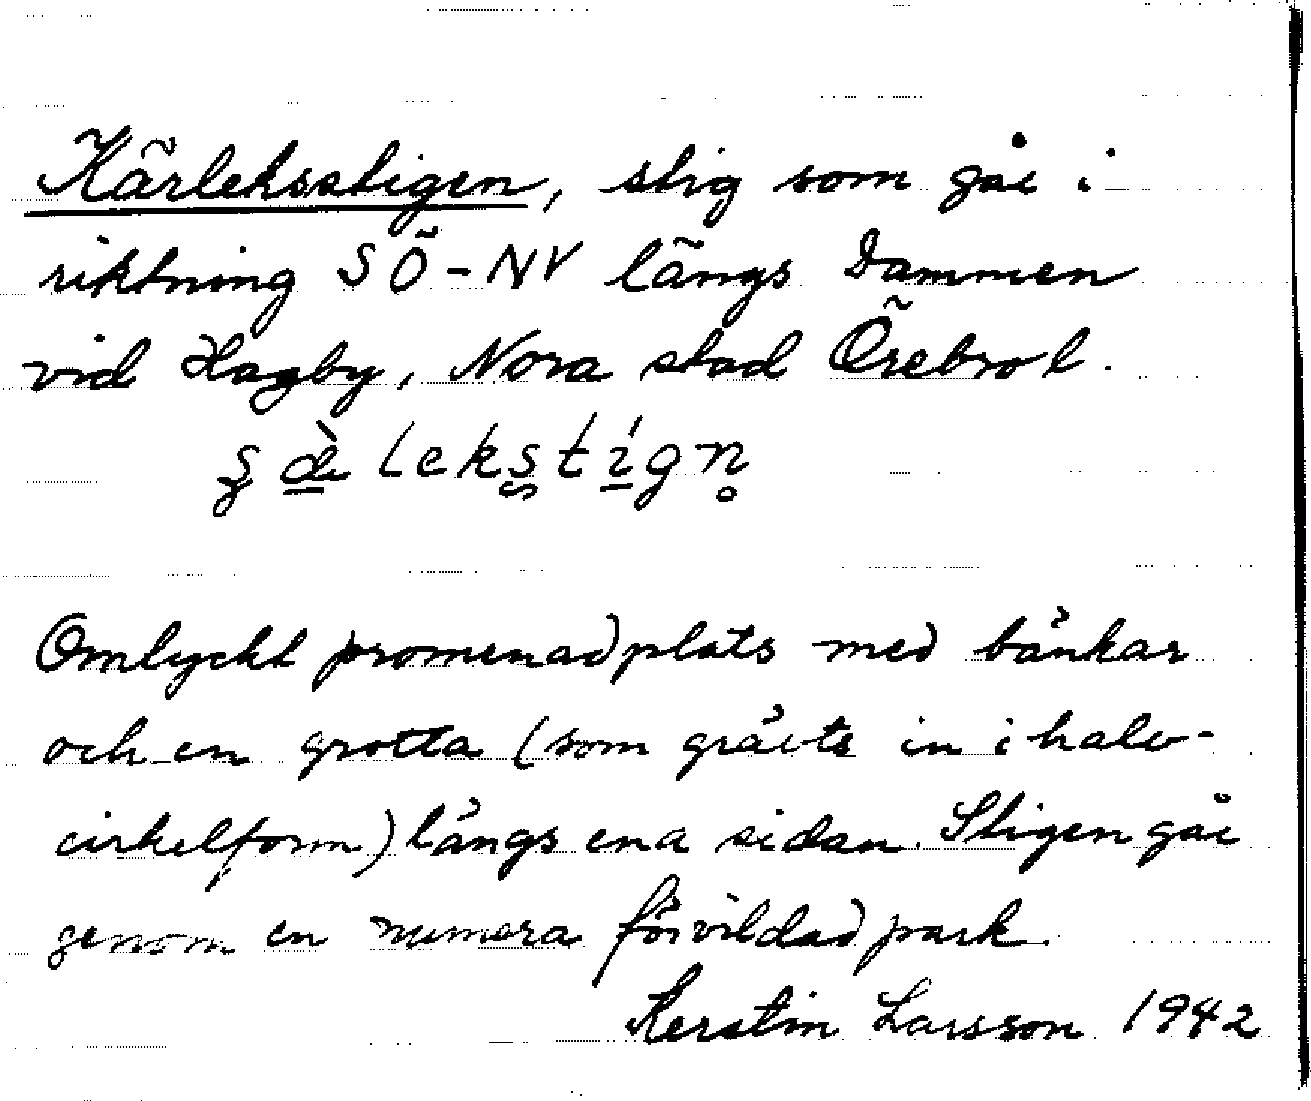 Kärleksstigen, stig som går i
riktning SÖ-NV längs Dammen
vid Hagby, Nora stad Örebro l.
Omlyckt promenadplats med bänkar
och en grotta (som grävts in i halv-
cirkelform) längs ena sidan. Stigen går
genom en numera förvildad park.
Kerstin Larsson 1942